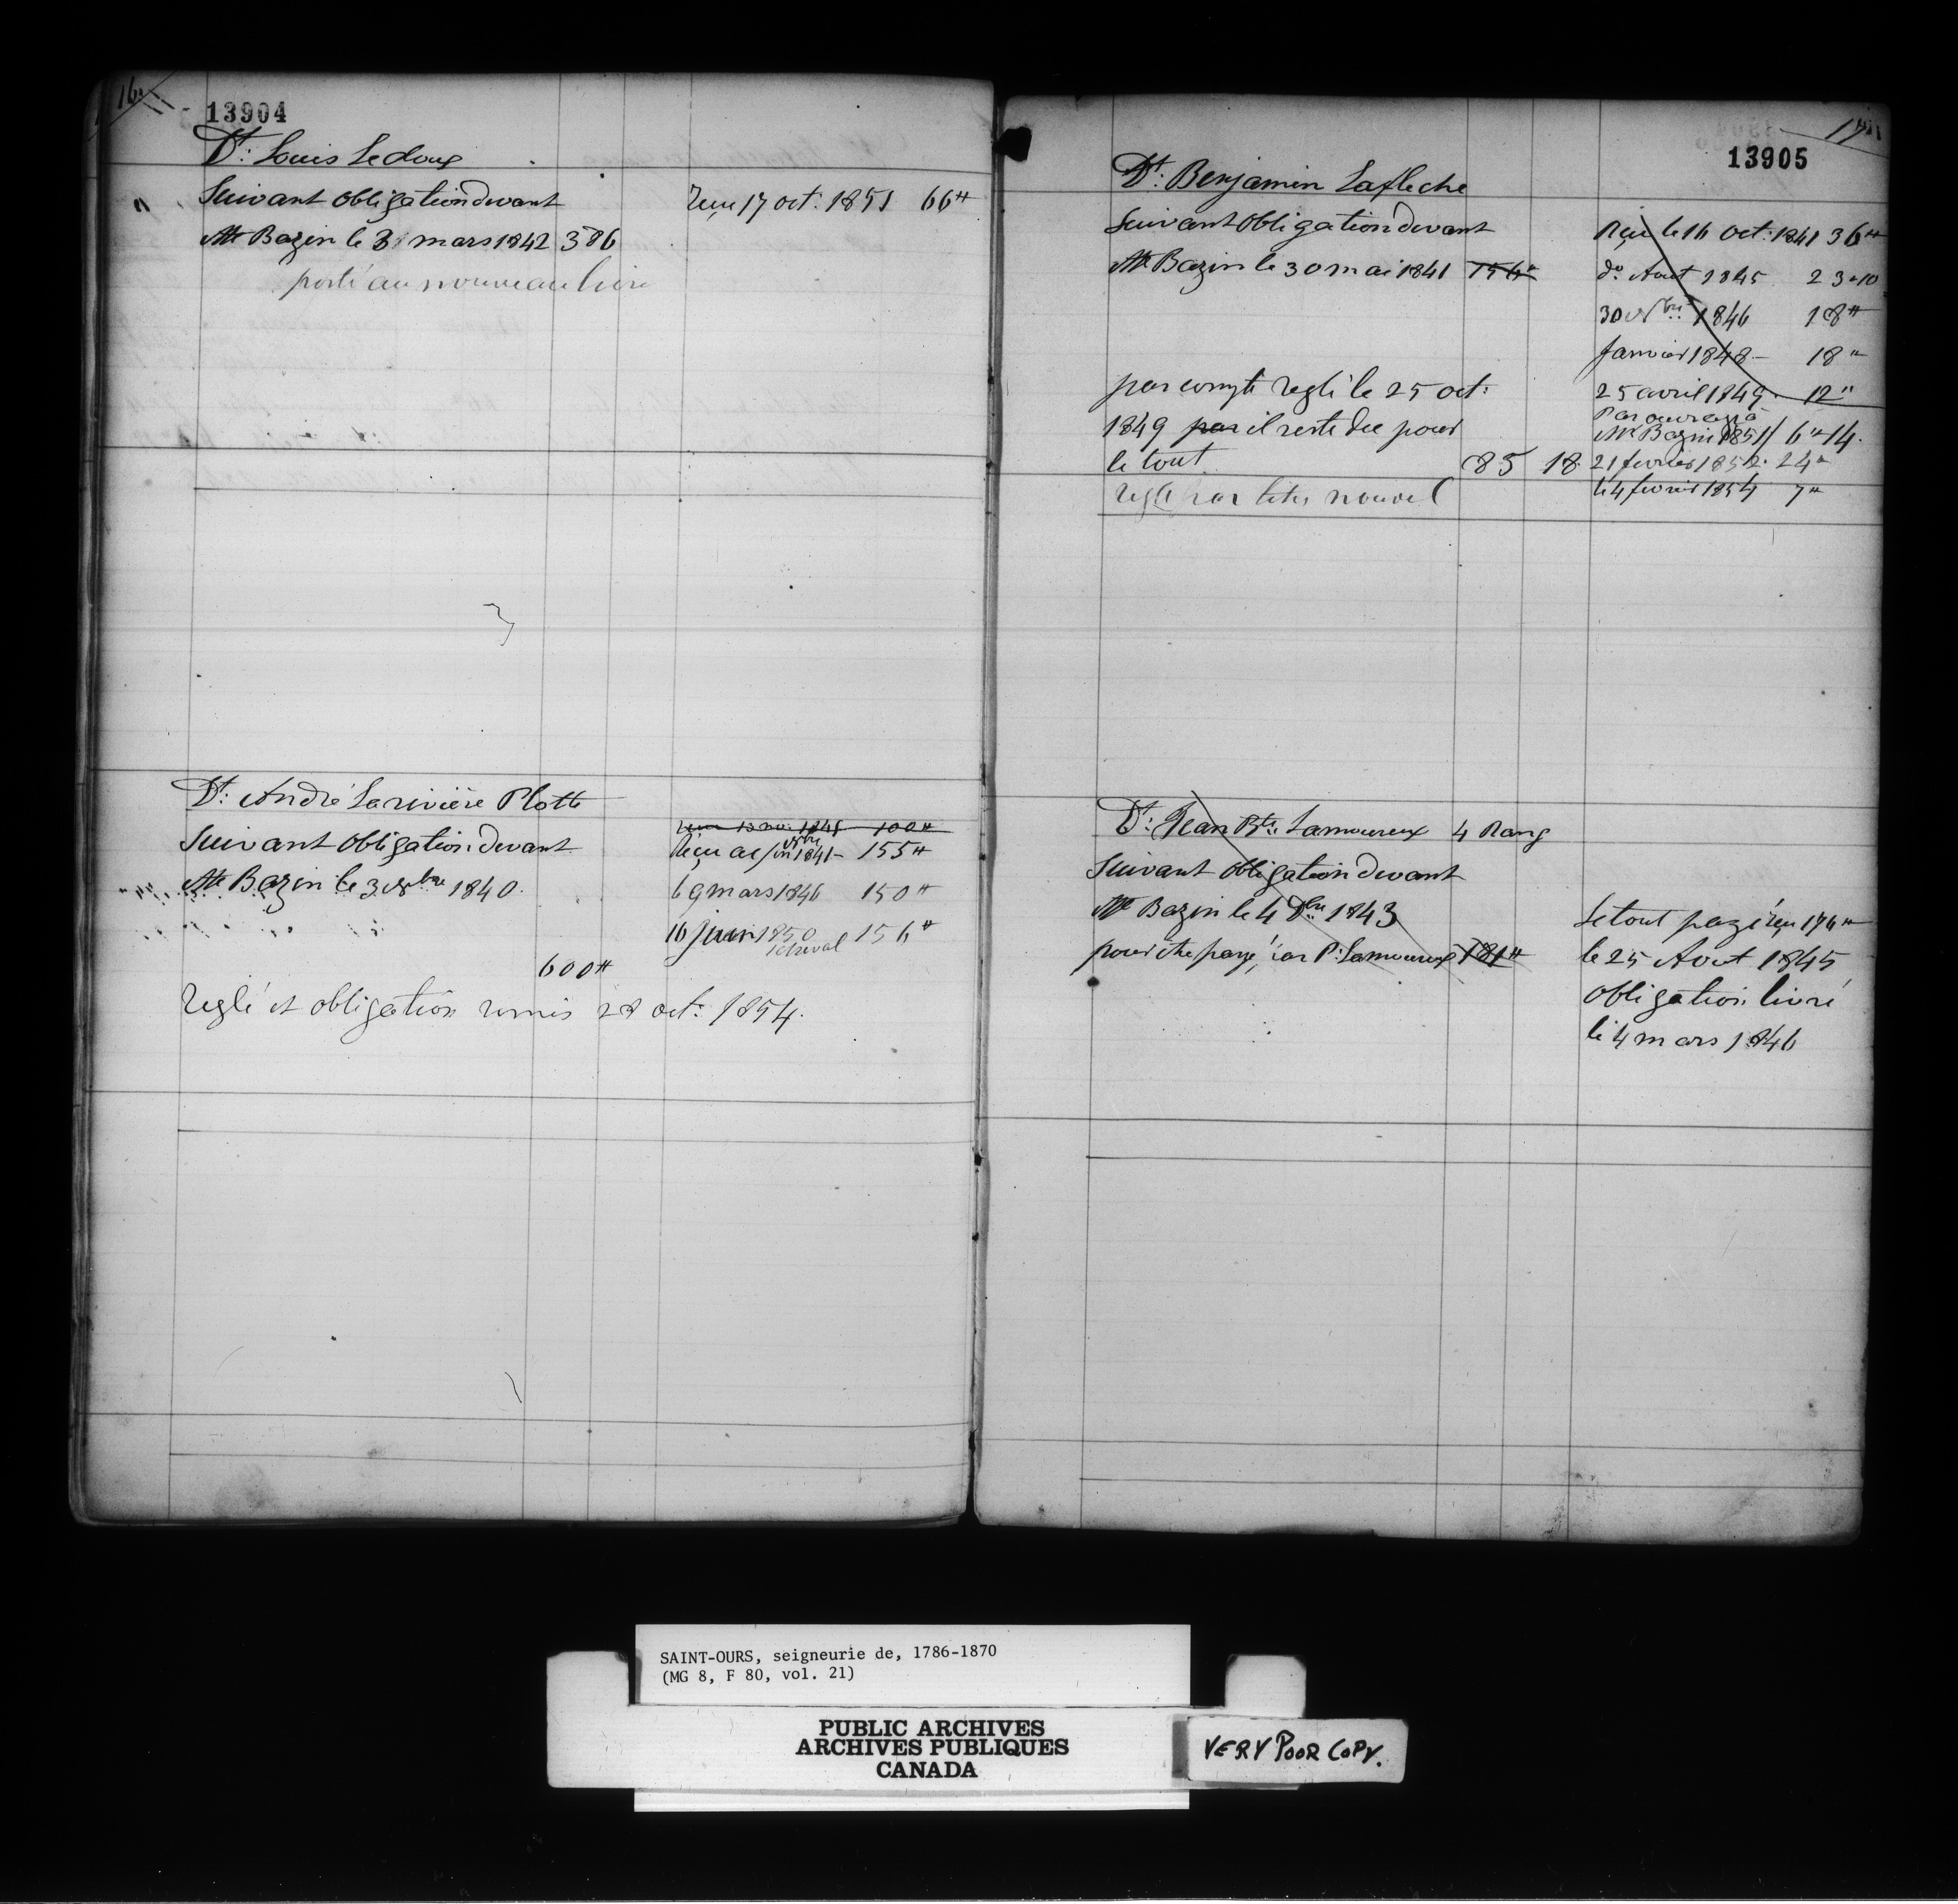 16
13904
Dt: Louis Ledoux
Suivant obligation devant
Mtre Bazin le 31 mars 1842 386
Reçu 17 oct. 1851 66#
porté au nouveau livre
Dt: André Larivière Plotte
Suivant Obligation devant
Mtre Bazin le 3 Nbre 1840.
600#
1841 100#
Reçu 1841 - 155#
9 mars 1846 150#
16 juin 1850 156#
1 cheval
Reglé et obligation remis 28 oct: 1854.
17
13905
Dt: Benjamin Lafleche
Suivant Obligation devant
Mtre Bazin le 30 mai 1841 156#
par compte reglé le 25 oct:
1849 par il reste due pour
le tout 85 18
reglé par nouvel
Reçu le 16 Oct: 1841 36#
do. Aout 1845 23 "10
30 Nbre: 1846 18#
Janvier 1848 - 18"
25 avril 1849. 12"
Par ouvrage à
Mr Bazin 1851 / 6" 14.
21 fevrier 1852. 24"
le 4 fevrier 1854 7"
Dt: Jean Bte: Lamoureux 4 Rang
Suivant obligation devant
Mtre Bazin le 4 Dbre 1843
pour être payé par P: Lamoureux 181#
Le tout payé reçu 174#
le 25 Aout 1845
obligation livré
le 4 mars 1846
SAINT-OURS, seigneurie de, 1786-1870
(MG 8, F 80, vol. 21)
PUBLIC ARCHIVES
ARCHIVES PUBLIQUES
CANADA
VERY POOR COPY.